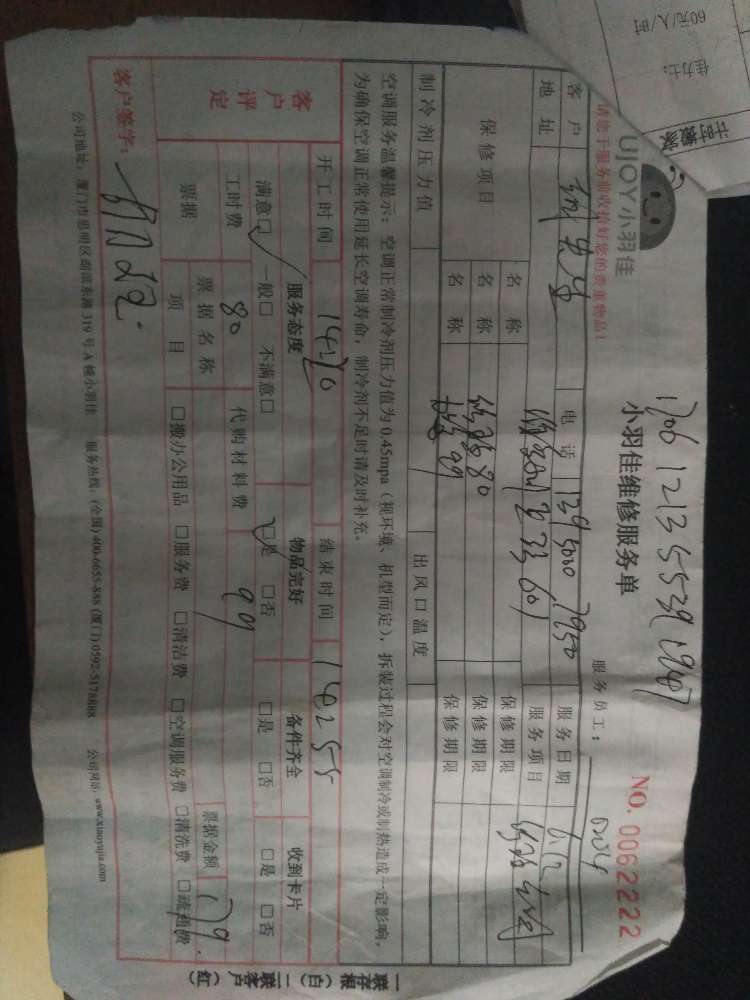 计时搬家
佳力士:
60元/人/时
UJOY小羽佳
请您于服务前收拾好您的贵重物品!
1706 1213 5539 1947
小羽佳维修服务单
服务员工:
NO. 0062222
客户 电话 139 5000 7950 服务日期
地址 服务项目
保修项目 名称 保修期限
名称 80 保修期限
名称 99 保修期限
制冷剂压力值 出风口温度
空调服务温馨提示:空调正常制冷剂压力值为0.45mpa(视环境、机型而定),拆装过程会对空调制冷或制热造成一定影响,
为确保空调正常使用延长空调寿命,制冷剂不足时请及时补充。
客户评定
开工时间 结束时间
服务态度 物品完好 备件齐全 收到卡片
满意□ 一般□ 不满意□ □是 □否 □是 □否 □是 □否
工时费 80 代购材料费 99
票据 票据名称 票据金额 179.
项目 □搬办公用品 □服务费 □清洁费 □空调服务费 □清洗费 □疏通费
客户签字:
公司地址:厦门市思明区莆滨东路319号A幢小羽佳 服务热线:(全国)400-6655-888 (厦门)0592-5178888 公司网站:www.xiaoyujia.com
一联存根(白)二联客户(红)